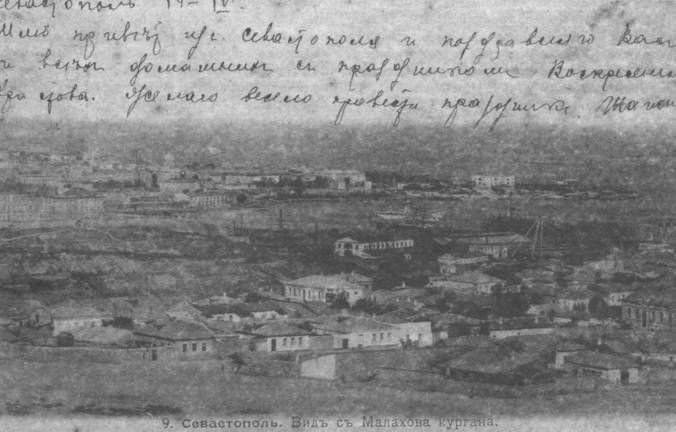 Севастополь 14 IV.
Шлю привѣтъ изъ Севастополя и поздравляю Васъ
и всѣхъ домашнихъ съ праздникомъ Воскресенія
Христова. Желаю весело провести праздникъ.
9. Севастополь. Видъ съ Малахова кургана.